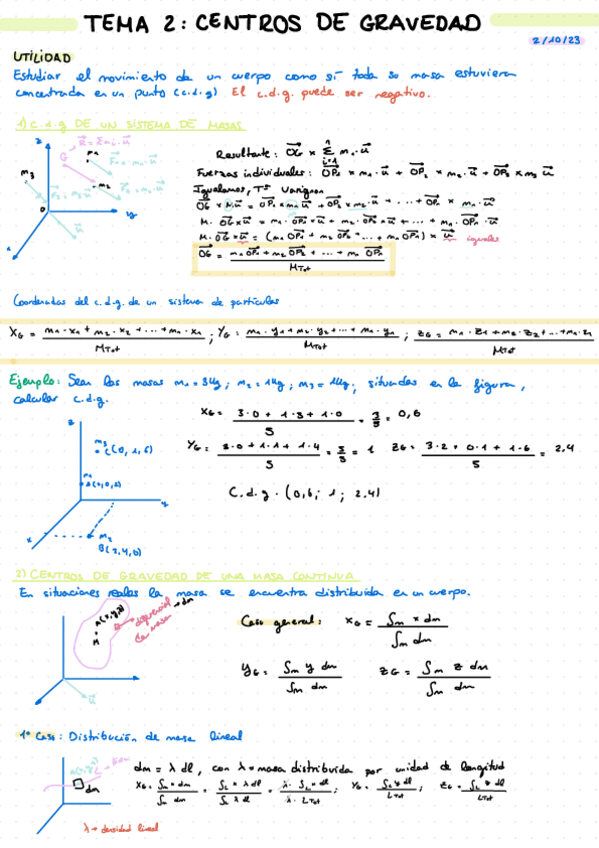 TEMA 2: CENTROS DE GRAVEDAD
2/10/23
UTILIDAD
Estudiar el movimiento de un cuerpo como si toda su masa estuviera
concentrada en un punto (c.d.g) El c.d.g. puede ser negativo.
1) C.d.g DE UN SISTEMA DE MASAS
Resultante: OG × Σ mi · u
Fuerzas individuales: OP₁ × m₁ · u + OP₂ × m₂ · u + OP₃ × m₃ u
Igualamos, Tª Varignon
OG × M u = OP₁ × m₁ u + OP₂ × m₂ · u + ... + OPn × mn · u
M · OG × u = m₁ · OP₁ × u + m₂ · OP₂ × u + ... + mn · OPn · u
M · OG × u = (m₁ OP₁ + m₂ OP₂ + ... + mn OPn) × u iguales
OG = m₁ OP₁ + m₂ OP₂ + ... + mn OPn / MTot
Coordenadas del c.d.g. de un sistema de partículas
XG = m₁·x₁ + m₂·x₂ + ... + mn·xn / MTot ; YG = m₁·y₁ + m₂·y₂ + ... + mn·yn / MTot ; ZG = m₁·z₁ + m₂·z₂ + ... + mn·zn / MTot
Ejemplo: Sean las masas m₁ = 3kg ; m₂ = 1kg ; m₃ = 1kg ; situadas en la figura,
calcular c.d.g.
XG = 3·0 + 1·3 + 1·0 / 5 = 3/5 = 0,6
YG = 3·0 + 1·1 + 1·4 / 5 = 5/5 = 1 ZG = 3·2 + 0·1 + 1·6 / 5 = 2,4
C.d.g. (0,6 ; 1 ; 2,4)
m₃
C(0,1,6)
m₁
A(0,0,2)
m₂
B(3,4,0)
2) CENTROS DE GRAVEDAD DE UNA MASA CONTINUA
En situaciones reales la masa se encuentra distribuida en un cuerpo.
A(x,y,z)
M
diferencial de masa → dm
Caso general: XG = ∫m x dm / ∫m dm
YG = ∫m y dm / ∫m dm ZG = ∫m z dm / ∫m dm
1º Caso: Distribución de masa lineal
dm = λ dl, con λ = masa distribuida por unidad de longitud
dm
λ → densidad lineal